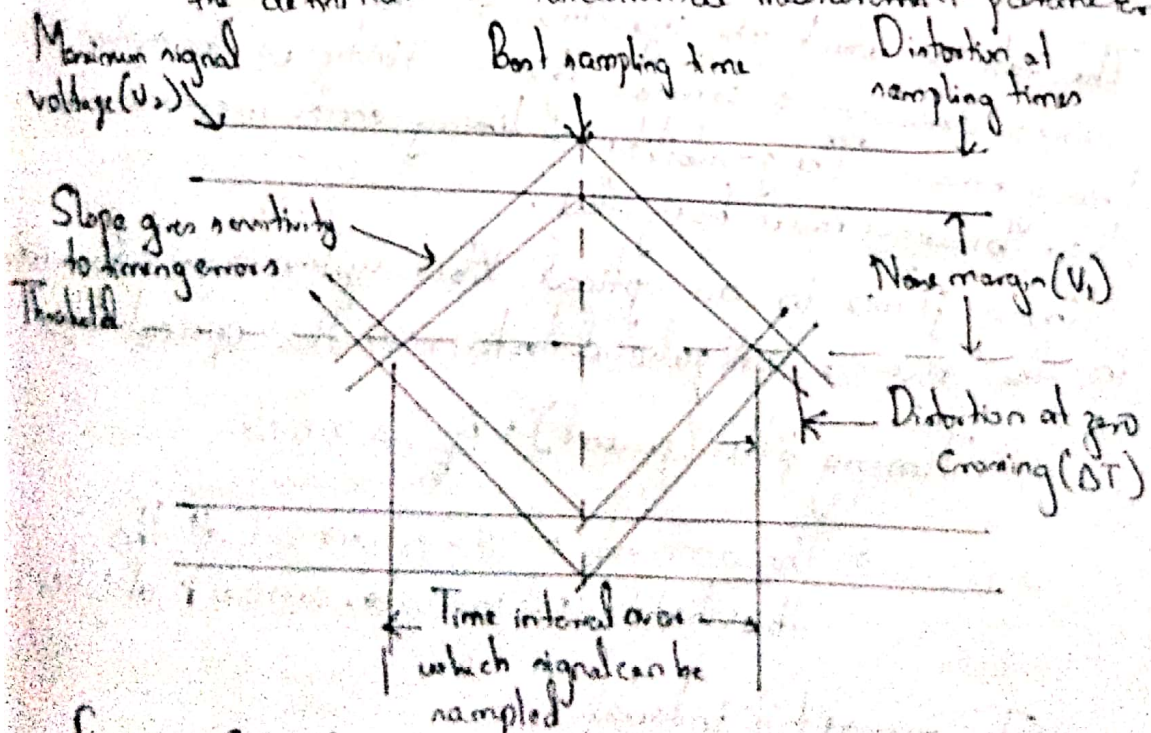 the
Maximum signal
voltage (V₂)
Best sampling time
Distortion at
sampling times
Slope gives sensitivity
to timing errors
Threshold
Noise margin (V₁)
Distortion at zero
Crossing (ΔT)
Time interval over
which signal can be
sampled